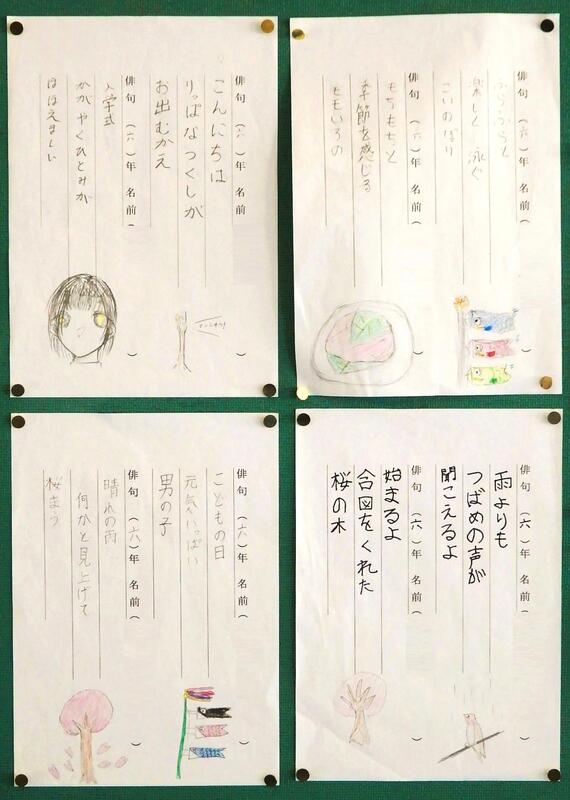 俳句 (六)年 名前( )
楽しく 泳ぐ
こいのぼり
俳句 (六)年 名前( )
もちもちと
季節を感じる
ももいろの
俳句 (六)年 名前( )
こんにちは
りっぱなつくしが
お出むかえ
俳句 (六)年 名前( )
入学式
かがやくひとみが
ほほえましい
俳句 (六)年 名前( )
雨よりも
つばめの声が
聞こえるよ
俳句 (六)年 名前( )
始まるよ
合図をくれた
桜の木
俳句 (六)年 名前( )
こどもの日
元気いっぱい
男の子
俳句 (六)年 名前( )
晴れの雨
何かと見上げて
桜まう